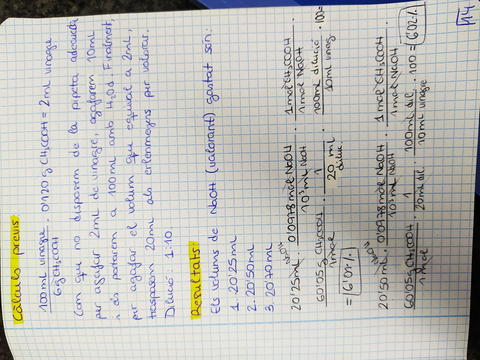 Càlculs previs
100ml vinagre / 6g CH3COOH · 0'120 g CH3COOH = 2ml vinagre
Com que no disposem de la pipeta adequada
per agafar 2ml de vinagre, agafarem 10ml
i els portarem a 100ml amb H2Od. Finalment,
per agafar el volum que equival a 2ml,
traspassem 20ml als erlenmeyers per valorar.
Dilució: 1:10
Resultats
Els volums de NaOH (valorant) gastat són:
1. 20'25ml
2. 20'50ml
3. 20'70ml
20'25ml NaOH · 0'0978mol NaOH / 10³ml NaOH · 1mol CH3COOH / 1mol NaOH ·
60'05g CH3COOH / 1mol · 1 / 20 ml diluc. · 100ml dilució / 10ml vinag. · 100=
= 6'01%
20'50ml NaOH · 0'0978mol NaOH / 10³ml NaOH · 1mol CH3COOH / 1mol NaOH ·
60'05g CH3COOH / 1mol · 1 / 20ml dil. · 100ml dil / 10ml vinagre · 100 = 6'02%
14